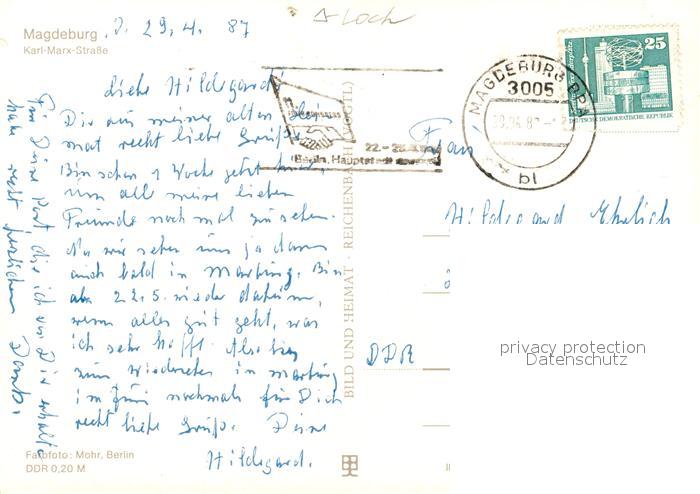 Magdeburg
Karl-Marx-Straße
D. 29.4. 87
Liebe Hildegard!
Dir aus meiner alten Hei
mat recht liebe Grüße.
Bin schon 1 Woche jetzt hier,
um alle meine lieben
Freunde noch mal zu sehen.
Na wir sehen uns ja dann
auch bald in Marburg. Bin
ab 22.5. wieder daheim,
wenn alles gut geht, was
ich sehr hoffe. Also bis
zum Wiedersehen in Marburg
im Juni nochmals für Dich
recht liebe Grüße. Deine
Hildegard.
Für Deine Post die ich von Dir erhalte
habe recht herzlichen Dank.
Farbfoto: Mohr, Berlin
DDR 0,20 M
BILD UND HEIMAT · REICHENBACH (VOGTL)
22.-2
Berlin, Hauptstadt
MAGDEBURG BPA
3005
bl
25
DEUTSCHE DEMOKRATISCHE REPUBLIK
Frau
Hildegard Ehrlich
DDR
privacy protection
Datenschutz